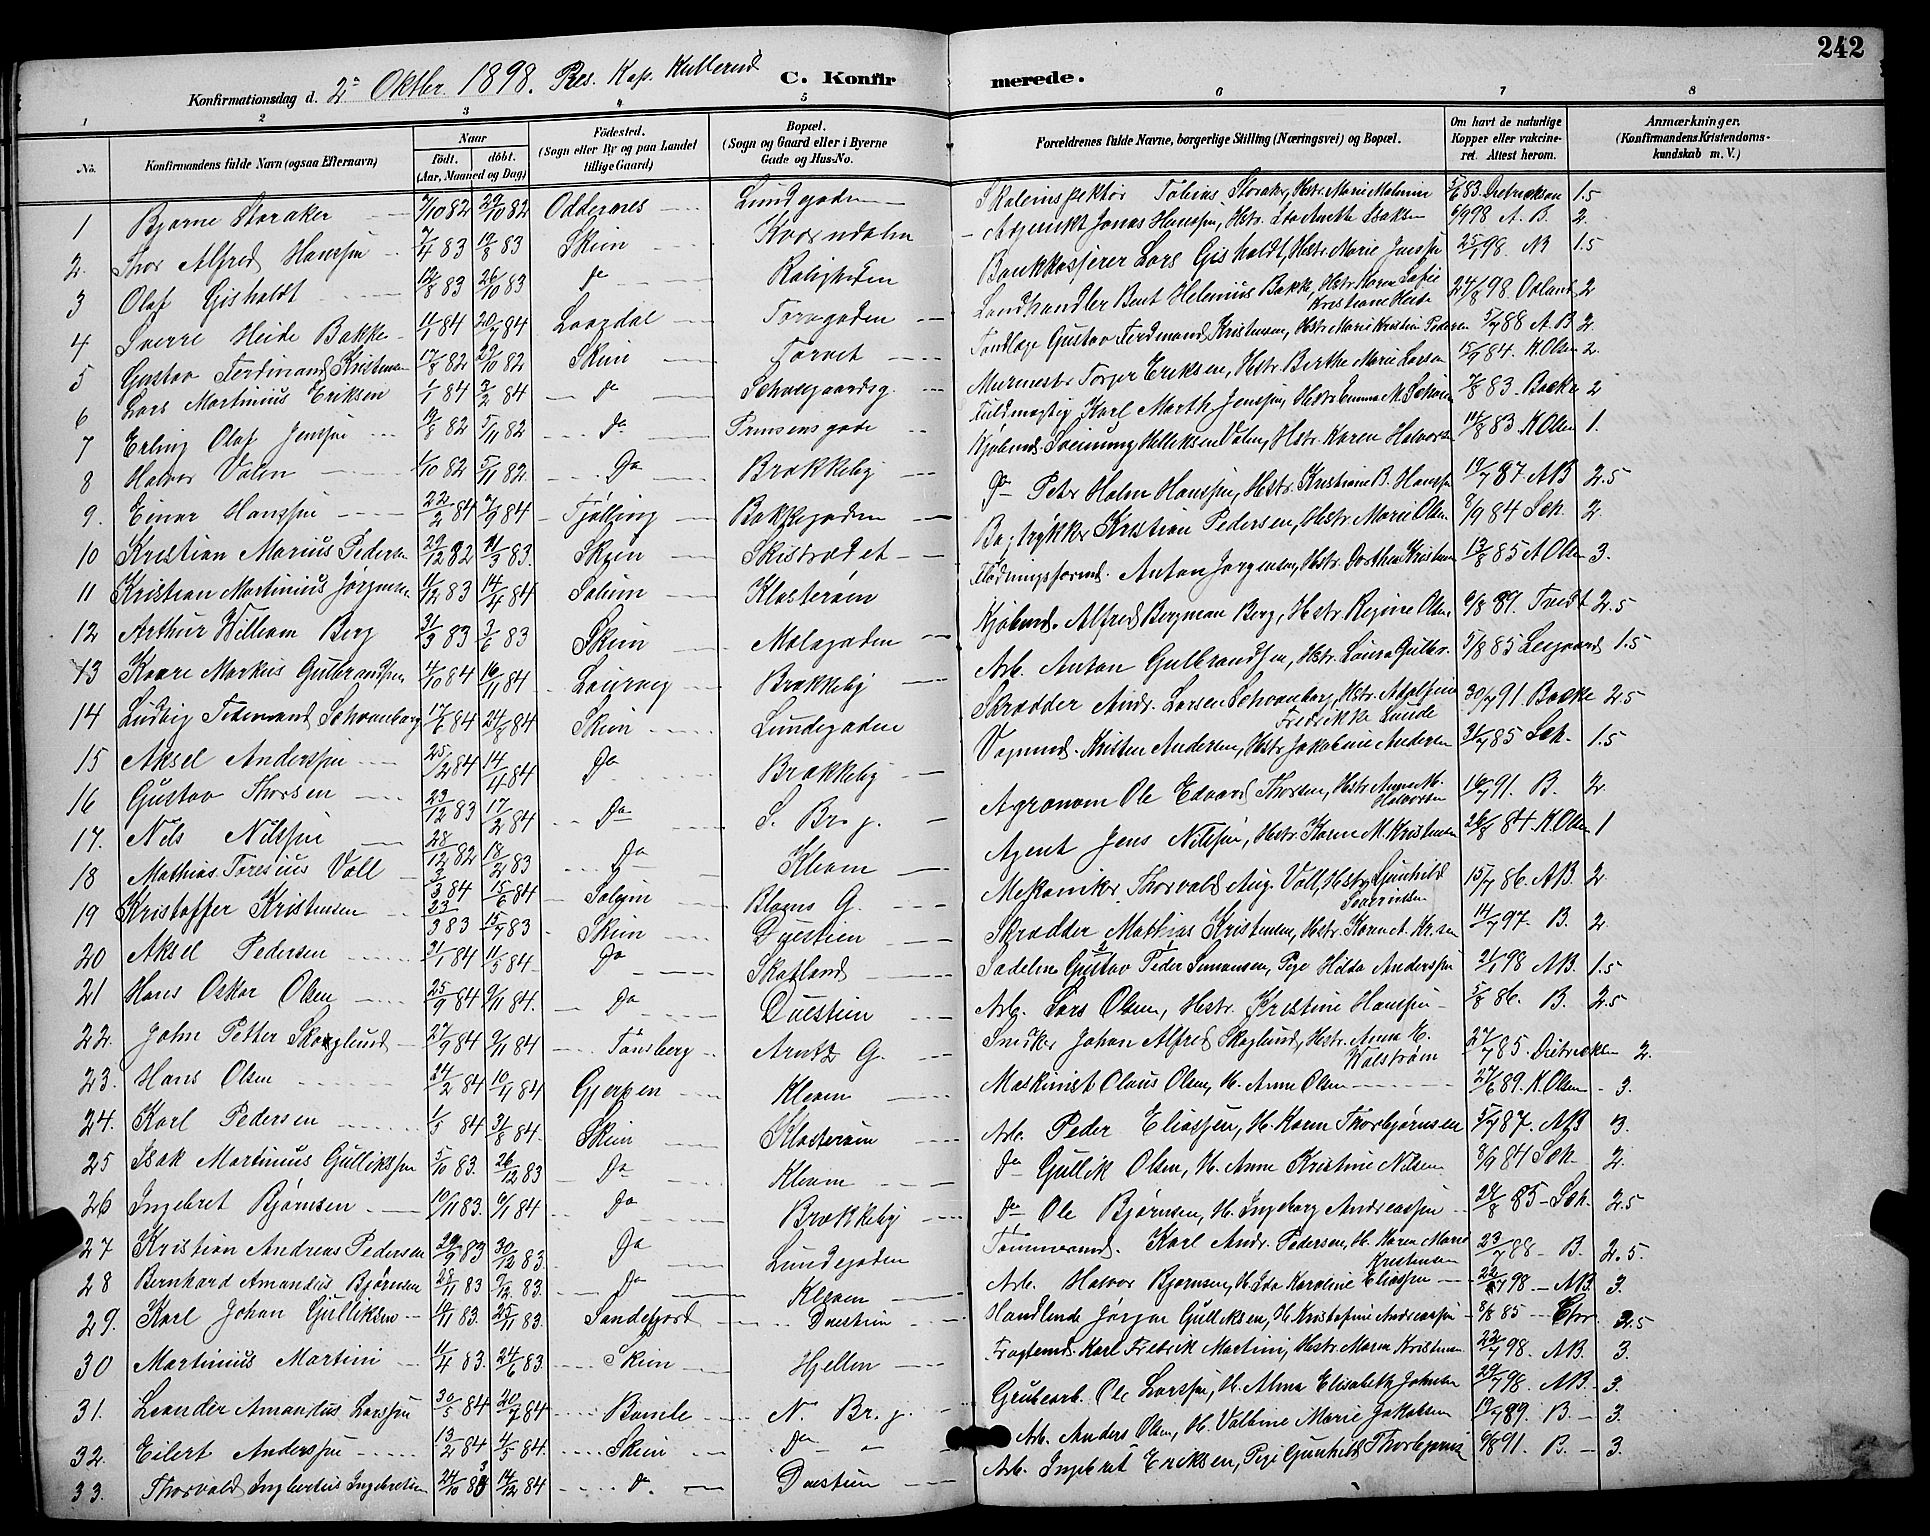 242
C. Konfirmerede.
Konfirmationsdag d. 2 Oktbr. 1898. Res. Kap. Kullerud
1 2 3 4 5 6 7 8
No. Konfirmandens fulde Navn (ogsaa Efternavn) Naar født. døbt. (Aar, Maaned og Dag) Fødested. (Sogn eller By og paa Landet tillige Gaard) Bopæl. (Sogn og Gaard eller i Byerne Gade og Hus-No. Forældrenes fulde Navne, borgerlige Stilling (Næringsvei) og Bopæl. Om havt de naturlige Kopper eller vakcineret. Attest herom. Anmærkninger. (Konfirmandens Kristendomskundskab m. V.)
1 Bjarne Storaker 7/10 82 29/10 82 Oddernes Lundegaden Skoleinspektør Tobias Storaker, Hstr. Marie 83. Diedrichsen 1.5
2. Thor Alfred Hanssen 7/4 83 19/8 83 Skien Kværndalen Adjunkt Jonas Hanssen, Hstr. Ida Anethe Isaksen 98 A. B. 2.
3 Olaf Gisholdt 12/8 83 26/10 83 Do Roligheden Bankkasserer Lars Gisholdt, Hstr. Marie Jenssen 98. AB 1.5
4 Sverre Heide Bakke 84 20/7 84 Laagdal Torvgaden Landhandler Bent Helenius Bakke, Hstr. Karen Sofie Kristiane Heide 24/8 98. 2
5 Gustav Ferdinand Kristensen 17/8 82 29/10 82 Skien Torvet Tandlæge Gustav Ferdinand Kristensen, Hstr. Marie Kristine Pedersen 5/7 88 A. B. 2.
6 Lars Martinius Eriksen 1/1 84 2/2 84 Do Schweigaardsg. Murmestr. Torger Eriksen, Hstr. Berthe Marie Larsen 15/7 84. K. Olsen 2.
7 Erling Olaf Jenssen 19/8 82 5/11 82 Do Prinsensgade Fuldmægtig Karl Marth. Jenssen, Hstr. Emma M. 7/8 83. Backe 2
8 Halvor Valen 1/10 82 5/11 82 Do Brækkeby Kjøbmd. Sveinung Kittilsen Valen, Hstr. Karen Halvorsen 14/8 83 K. Olsen 1.
9. Einar Hanssen 22/2 84 7/9 84 Tjølling Bakkegaden Do Peter Holm Hanssen, Hstr. Kristiane B. Hanssen 19/7 87 AB 2.5
10 Kristian Marius Pedersen 29/12 82 11/3 83. Skien Skistrædet Bogtrykker Kristian Pedersen, Hstr. Marie Olsen 9/9 84 Sch. 2
11 Kristian Martinius Jørgensen 11/12 83 14/4 84 Solum Klosterøen Flødningsformd. Anton Jørgensen, Hstr. Dorthea Kristensen 13/8 85 A. Olsen 3.
12 Arthur William Berg 31/3 83 3/6 83 Skien Malagaden Kjøbmd. Alfred Bergman Berg, Hstr. Regine Olsen 9/8 89. Tvedt 2.5
13 Kaare Markus Gulbrandsen 4/10 84 16/11 84 Laurvig Brækkeby Arb. Anton Gulbrandsen, Hstr. Laura Gulbr. 5/8 85 Leegaard 1.5
14 Ludvig Ferdinand Schvanborg 17/6 84 24/8 84 Skien Lundegaden Skrædder Andr. Larsen Schvanborg, Hstr. Adolfine Fredrikke Lunde 30/7 91. Backe 2.5
15 Aksel Anderssen 25/2 84 14/4 84 Do Brækkeby Vognmd. Kristen Andersen, Hstr. Jakobine Andersen 31/7 85 Sch. 1.5
16 Gustav Thorsen 23/12 83 17/2 84 Do S. Br. g. Agronom Ole Edvard Thorsen, Hstr. Anne M. Halvorsen 16/7 91. B. 2
17. Nils Nilssen 28/12 82 18/2 83 Do Kleven Agent Jens Nilssen, Hstr. Karen M. Kristensen 26/8 84. K. Olsen 1
18 Mathias Toresius Voll 3/3 84 15/6 84 Solum Blaaus G. Mekaniker Thorvald Aug. Voll, Hstr. Gunhild 15/7 86. AB. 2.
19 Kristoffer Kristensen 23/3 83 15/7 83 Skien Duestien Skrædder Mathias Kristensen, Hstr. Karen A. Kr.sen 14/7 97. B. 2
20 Aksel Pedersen 31/1 84 11/5 84 Do Skotland Sadelm. Gustav Peder Simonsen, Pige Hilda Anderssen 21/1 98 AB. 1.5
21 Hans Oskar Olsen 25/9 84 9/11 84. Do Duestien Arb. Lars Olsen, Hstr. Kristine Hanssen 5/8 86. B. 2.5
22. John Petter Skoglund 27/9 84 9/11 84 Tønsberg Arntz G. Snedker Johan Alfred Skoglund, Hstr. Anna M. Walstrøm 27/7 85. Diedrichsen 2.
23. Hans Olsen 24/2 84 84 Gjerpen Kleven Maskinist Olaus Olsen, H. Anne Olsen 27/6 89. K. Olsen 3.
24. Karl Pedersen 1/5 84 31/8 84. Skien Klosterøen Arb. Peder Eliassen, H. Karen Thorbjørnsen 5/7 87. AB 3.
25 Isak Martinius Gullikssen 5/10 83. 26/12 83 Do Kleven Do Gullik Olsen, H. Anne Kristine Nilsen 3/9 84 Sch. 2.
26 Ingebret Bjørnsen 10/11 83. 84 Do Brækkeby Do Ole Bjørnsen, H. Ingeborg Andreassen 24/8 85 Sch. 2.5
27 Kristian Andreas Pedersen 29/9 83 30/12 83. Do Lundegaden Tømmermd. Karl Andr. Pedersen, H. Karen Marie Kristensen 23/7 88 B. 2.5.
28 Bernhard Amandus Bjørnsen 28/11 83 83. Do Kleven Arb. Halvor Bjørnsen, H. Ida Karoline Eliassen 22/7 98 AB. 3.
29. Karl Johan Gulliksen 83. 25/11 83. Sandefjord Duestien Handlende Jørgen Gulliksen, H. Kristofine Andreassen 85 2.5
30 Martinius Martini 11/4 83. 24/6 83. Skien Hjellen Fragtemd. Karl Fredrik Martini, Hstr. Maren Kristensen 22/7 98. AB. 3.
31. Leander Amandus Larssen 30/5 84 20/7 84. Bamle N. Br. g. Grubearb. Ole Larssen, H. Alma Elisabeth Johnsen 29/7 98. AB. 3.
32. Eilert Anderssen 13/2 84 4/5 84. Skien Do Arb. Anders Olsen, H. Valbine Marie Jakobsen 19/7 89. B. 3
33. Thorvald Ingbertus Ingebretsen 24/10 83 14/12 84 Do Duestien Arb. Ingebret Eriksen, Pige Gunhild Thorbjørns 9/8 91. B. 3.